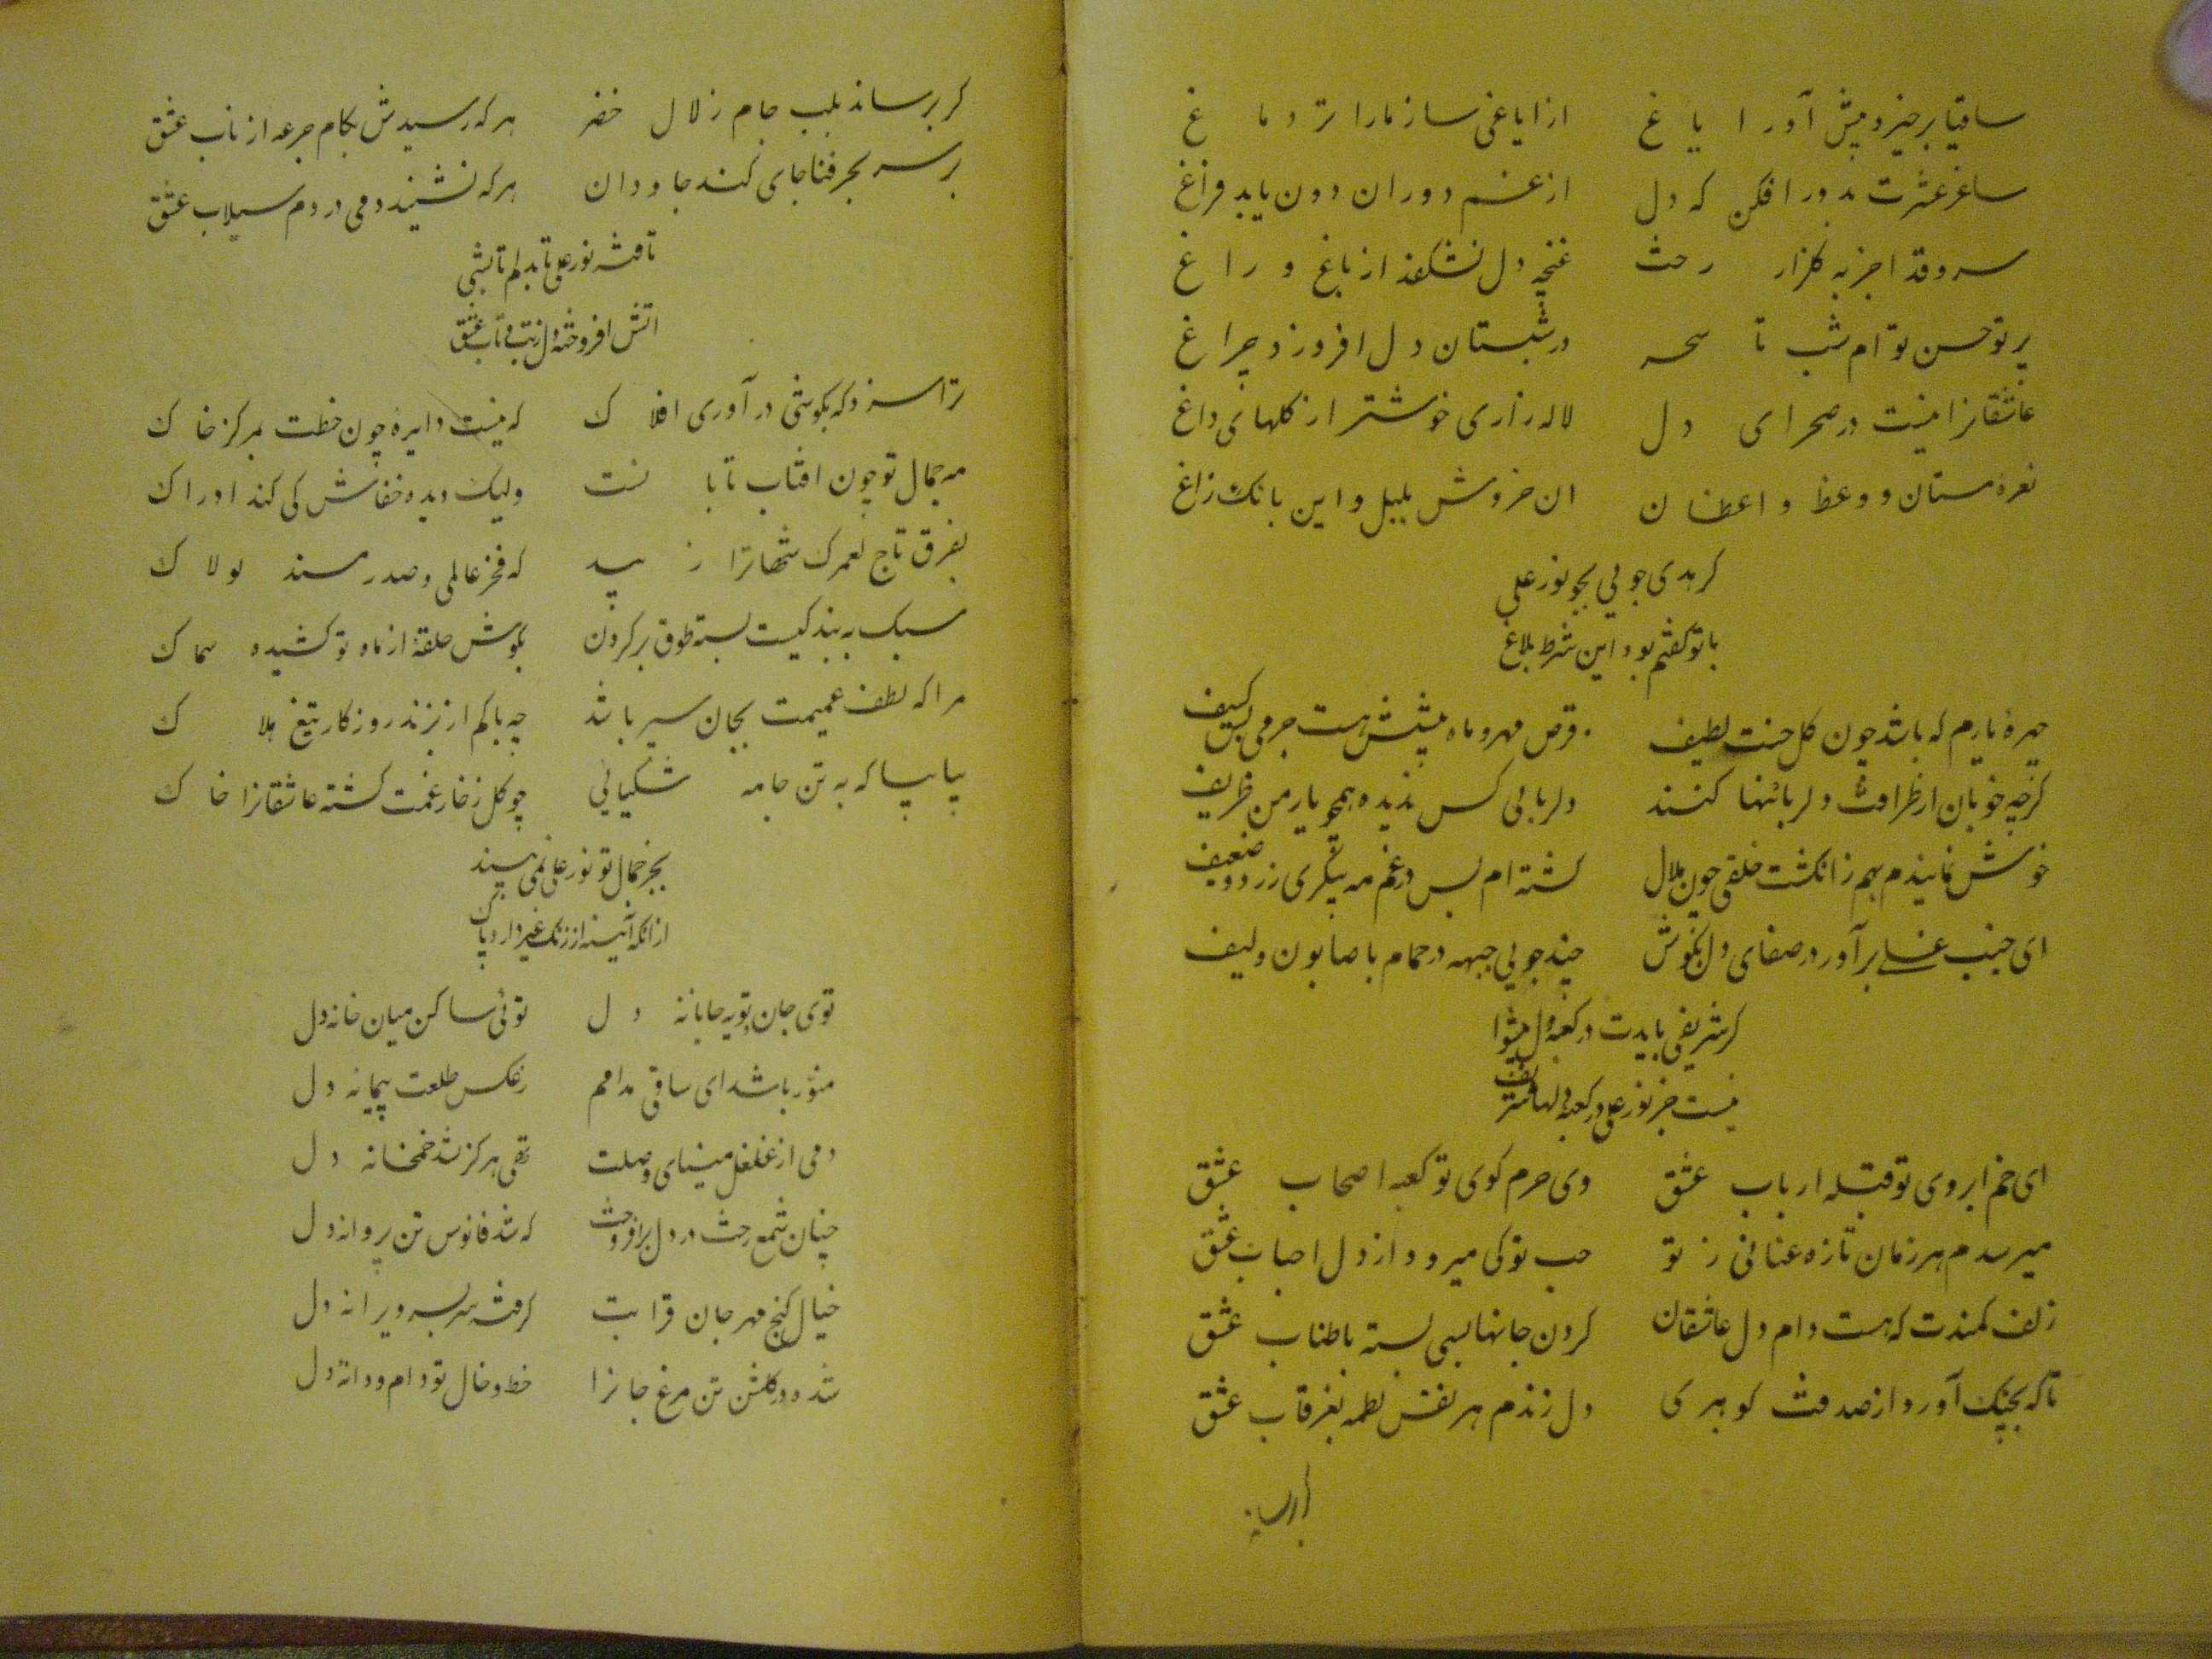 ساقیا برخیز و پیش آور ایاغ از ایاغی ساز ما را تر دماغ
ساغر عشرت بدور افکن که دل از غم دوران دون یابد فراغ
سرو قدا جز به گلزار رخت غنچه دل نشکفد از باغ و راغ
پرتو حسن توام شب تا سحر در شبستان دل افروزد چراغ
عاشقانرا نیست در صحرای دل لاله زاری خوشتر از گلهای داغ
نعره مستان و وعظ واعظان ان خروش بلبل و این بانک زاغ
کر هدی جویی بجو نور علی
با تو گفتم بود این شرط بلاغ
چهره یارم که باشد چون گل جنت لطیف قرص مهر و ماه پیشش هست جرمی بس کثیف
گرچه خوبان از ظرافت دلربائیها کنند دلربایی کس ندیده همچو یار من ظریف
خوش نمایندم بهم ز انگشت خلقی چون هلال گشته ام بس در غم مه پیکری زرد و ضعیف
ای جنب غسلی برآور در صفای دل بکوش چند جویی جبهه در حمام با صابون و لیف
کر شریفی بایدت در کعبه دل پیشوا
نیست جز نور علی در کعبه دلها شریف
ای خم ابروی تو قبله ارباب عشق وی حرم کوی تو کعبه اصحاب عشق
میرسدم هر زمان تازه عنائی ز تو حب تو کی میرود از دل احباب عشق
زلف کمندت که هست دام دل عاشقان گردن جانها بسی بسته باطناب عشق
تا که بچنگ آورد از صدفت گوهری دل زندم هر نفس لطمه بغرقاب عشق
گر برساند بلب جام زلال خضر هر که رسیدش بکام جرعه از ناب عشق
بر سر بحر فنا جای کند جاودان هر که نشیند دمی در دم سیلاب عشق
تافته نور علی تا بدلم تابشی
اتش افروخته دل ز تب و تاب عشق
ترا سزد که بکوشی در آوری افلاک که نیست دایره چون خطت بمرکز خاک
مه جمال تو چون افتاب تابانست ولیک دیده خفاش کی کند ادراک
بفرق تاج لعمرک شها ترا زیبد که فخر عالمی و صدر مسند لولاک
سبک به بندگیت بسته طوق بر گردن بگوش حلقه از ماه تو کشیده سماک
مرا که لطف عمیمت بجان سپر باشد چه باکم ار بزند روزگار تیغ هلاک
بیا بیا که به تن جامه شکیبایی چو گل ز خار غمت گشته عاشقانرا خاک
بجز جمال تو نور علی نمی بیند
از انکه آئینه از زنگ غیر دارد پاک
توی جان و تویه جانانه دل توئی ساکن میان خانه دل
منور باشد ای ساقی مدامم ز عکس طلعت پیمانه دل
دمی از غلغل مینای وصلت تهی هرگز نشد خمخانه دل
چنان شمع رخت در دل برافروخت که شد فانوس تن پروانه دل
خیال گنج مهر جان فزایت گرفته سر بسر ویرانه دل
شده در گلشن تن مرغ جانرا خط و خال تو دام و دانه دل